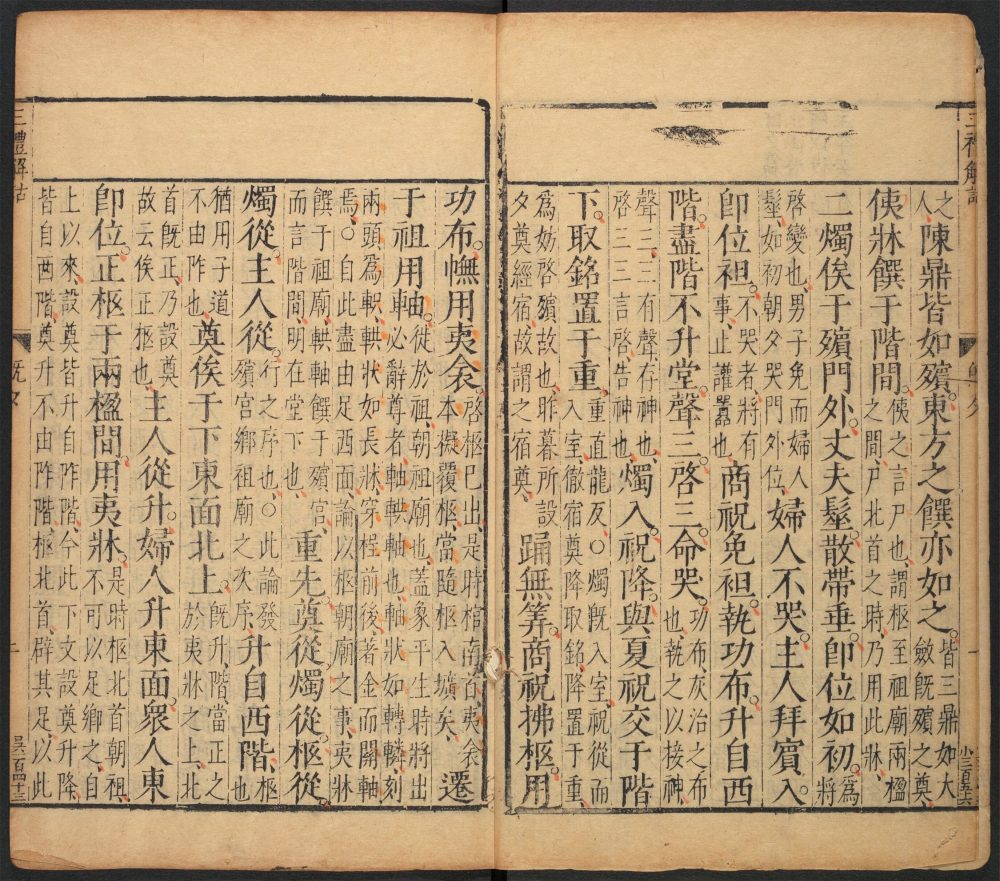 三禮解詁
之人陳鼎皆如殯。東方之饌亦如之。皆三鼎如大斂旣殯之奠
侇牀饌于階間。侇之言尸也謂柩至祖廟兩楹之間尸北首之時乃用此牀
二燭俟于殯門外。丈夫髽。散帶垂。卽位如初。爲將
啓變也男子免而婦人髽如初朝夕哭門外位婦人不哭。主人拜賓入。
卽位袒。不哭者將有事止讙嚻也商祝免袒。執功布。升自西
階。盡階不升堂聲三。啓三。命哭。功布灰治之布也執之以接神
聲三三有聲存神也啓三三言啓告神也燭入。祝降。與夏祝交于階
下。取銘置于重。重直龍反○燭旣入室祝從而入室徹宿奠降取銘降置于重
爲妨啓殯故也昨暮所設夕奠經宿故謂之宿奠踊無筭。商祝拂柩用
功布。幠用夷衾。啓柩已出是時棺南首夷衾本擬覆柩當隨柩入壙矣遷
于祖用軸。從於祖朝祖廟也蓋象平生時將出必辭尊者軸輁軸也軸狀如轉轔刻
兩頭爲軹輁狀如長牀穿桯前後著金而關軸焉○自此盡由足西面論以柩朝廟之事夷牀
饌于祖廟輁軸饌于殯宮而言階間明在堂下也重先。奠從。燭從。柩從。
燭從。主人從。行之序也○此論發殯宮鄉祖廟之次序升自西階。也
猶用子道不由阼也奠俟于下東面北上。旣升階當正之於夷牀之上北
首旣正乃設奠故云俟正柩也主人從升。婦人升東面。衆人東
卽位。正柩于兩楹間。用夷牀。是時柩北首朝祖不可以足鄉之自
上以來設奠皆升自阼階今此下文設奠升降皆自西階奠升不由阼階柩北首辟其足以此
三禮解詁
旣夕